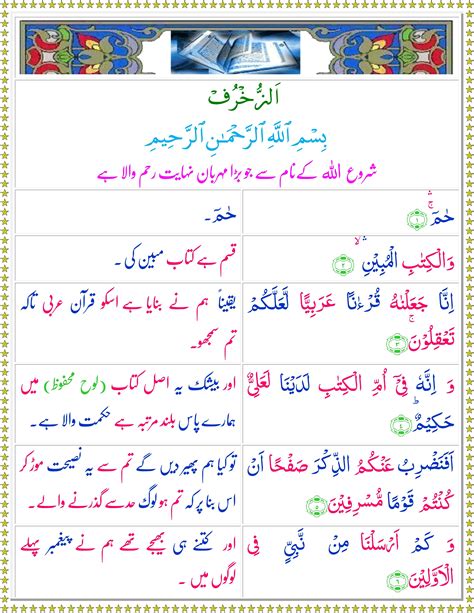 اَلزُّخْرُفْ
بِسْمِ ٱللَّهِ ٱلرَّحْمَـٰنِ ٱلرَّحِيمِ
شروع اللہ کے نام سے جو بڑا مہربان نہایت رحم والا ہے
حٰمٓ ۚۛ ﴿۱﴾
حٰمٓ۔
وَالْكِتٰبِ الْمُبِيْنِ ۙۛ ﴿۲﴾
قسم ہے کتاب مبین کی۔
اِنَّا جَعَلْنٰهُ قُرْءٰنًا عَرَبِيًّا لَّعَلَّكُمْ
تَعْقِلُوْنَ ۚ ﴿۳﴾
یقیناً ہم نے بنایا ہے اسکو قرآن عربی تاکہ
تم سمجھو۔
وَ اِنَّهٗ فِىْۤ اُمِّ الْكِتٰبِ لَدَيْنَا لَعَلِىٌّ
حَكِيْمٌ ؕ ﴿۴﴾
اور بیشک یہ اصل کتاب (لوح محفوظ) میں
ہمارے پاس بلند مرتبہ ہے حکمت والا ہے۔
اَفَنَضْرِبُ عَنْكُمُ الذِّكْرَ صَفْحًا اَنْ
كُنْتُمْ قَوْمًا مُّسْرِفِيْنَ ﴿۵﴾
تو کیا ہم پھیر دیں گے تم سے یہ نصیحت موڑ کر
اس بنا پر کہ تم ہو لوگ حد سے گذرنے والے۔
وَ كَمْ اَرْسَلْنَا مِنْ نَّبِىٍّ فِى
الْاَوَّلِيْنَ ﴿۶﴾
اور کتنے ہی بھیجے تھے ہم نے پیغمبر پہلے
لوگوں میں ۔